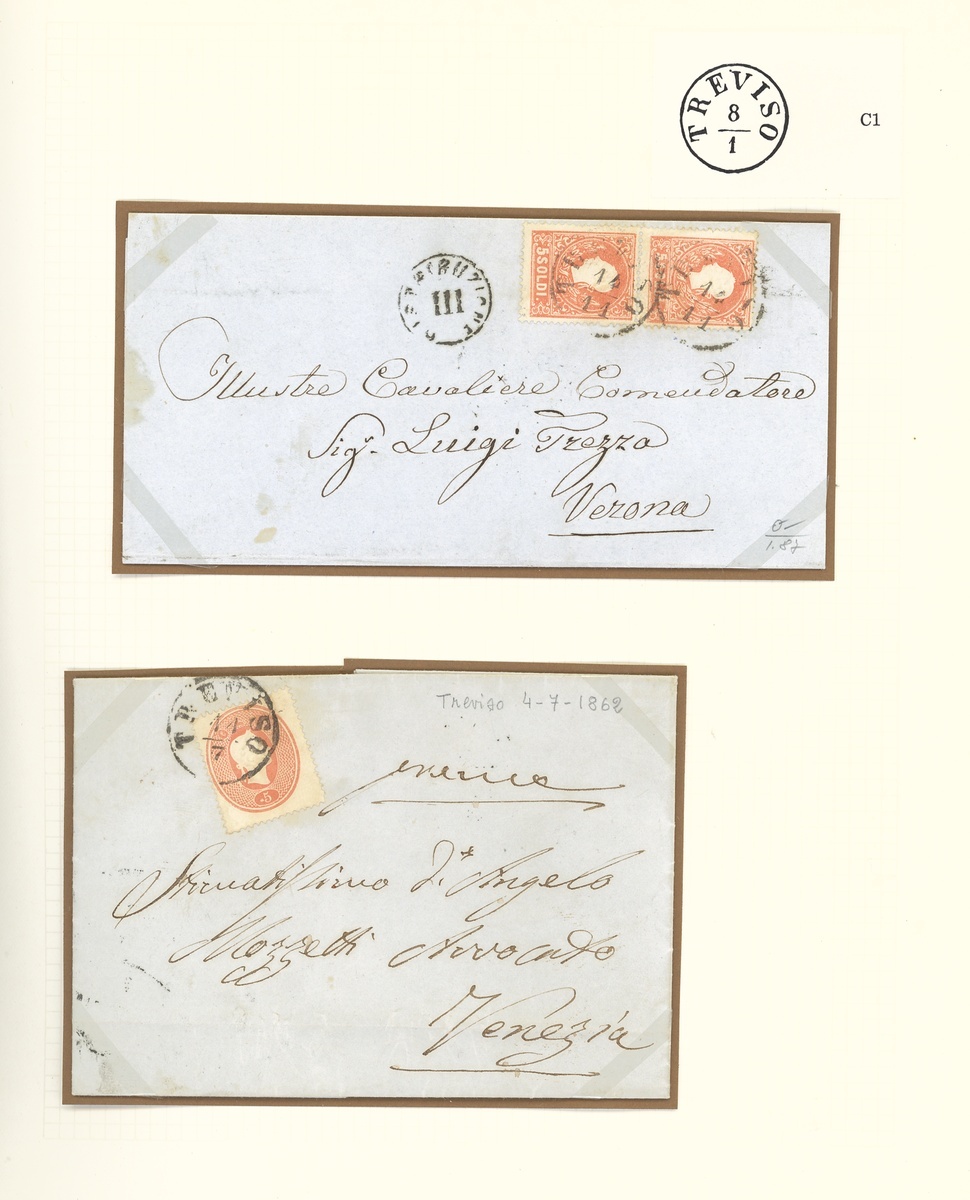 TREVISO
8
1
C1
DISTRIBUZIONE
III
5 SOLDI
14
11
14
11
Illustre Cavaliere Comendatore
Sigr. Luigi Trezza
Verona
1.87
TREVISO
Treviso 4-7-1862
5
Stimatissimo Dr. Angelo
Mozzetti Avvocato
Venezia